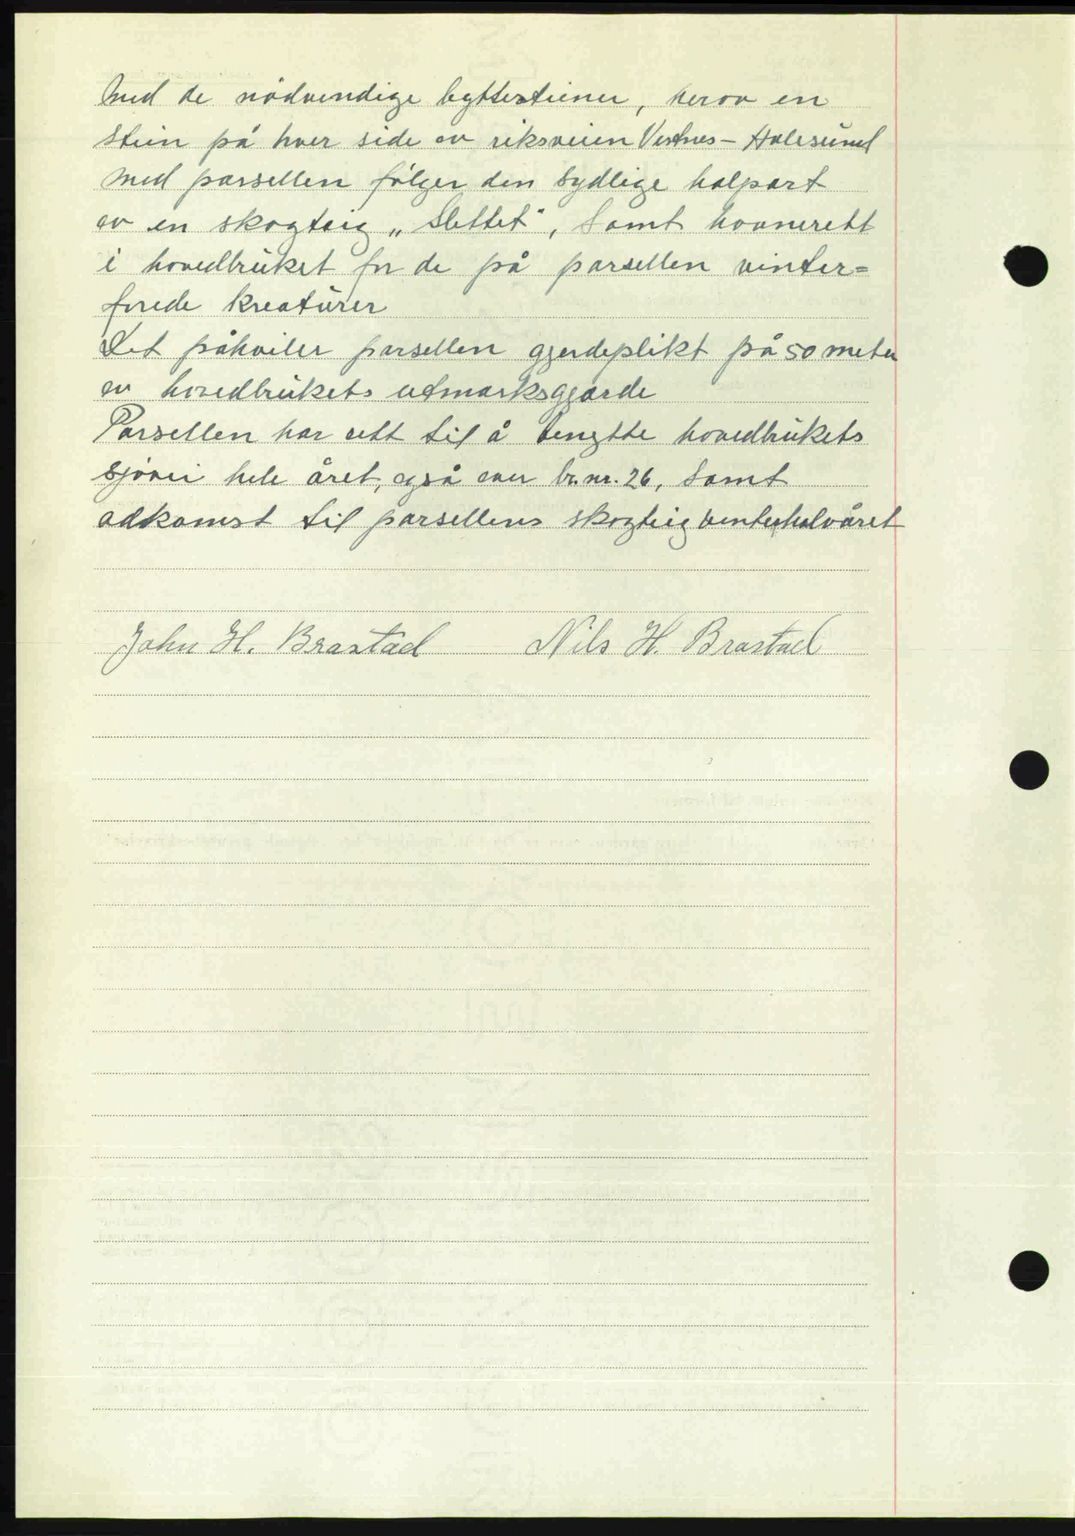 med de nödvendige byttesteiner, herov en
stein på hver side av riksveien Vestnes - Ålesund
Med parsellen følger den sydlige halpart
av en skogteig „Slettet“, samt havnerett
i hovedbruket for de på parsellen vinter=
forede kreatürer
Det påhviler parsellen gjerdeplikt på 50 meter
av hovedbrukets utmarksgjærde
Parsellen har rett til å benytte hovedbrukets
sjövei hele året, også over br.nr. 26, samt
adkomst til parsellens skogteig vinterhalvåret
John H. Brastad Nils H. Brastad